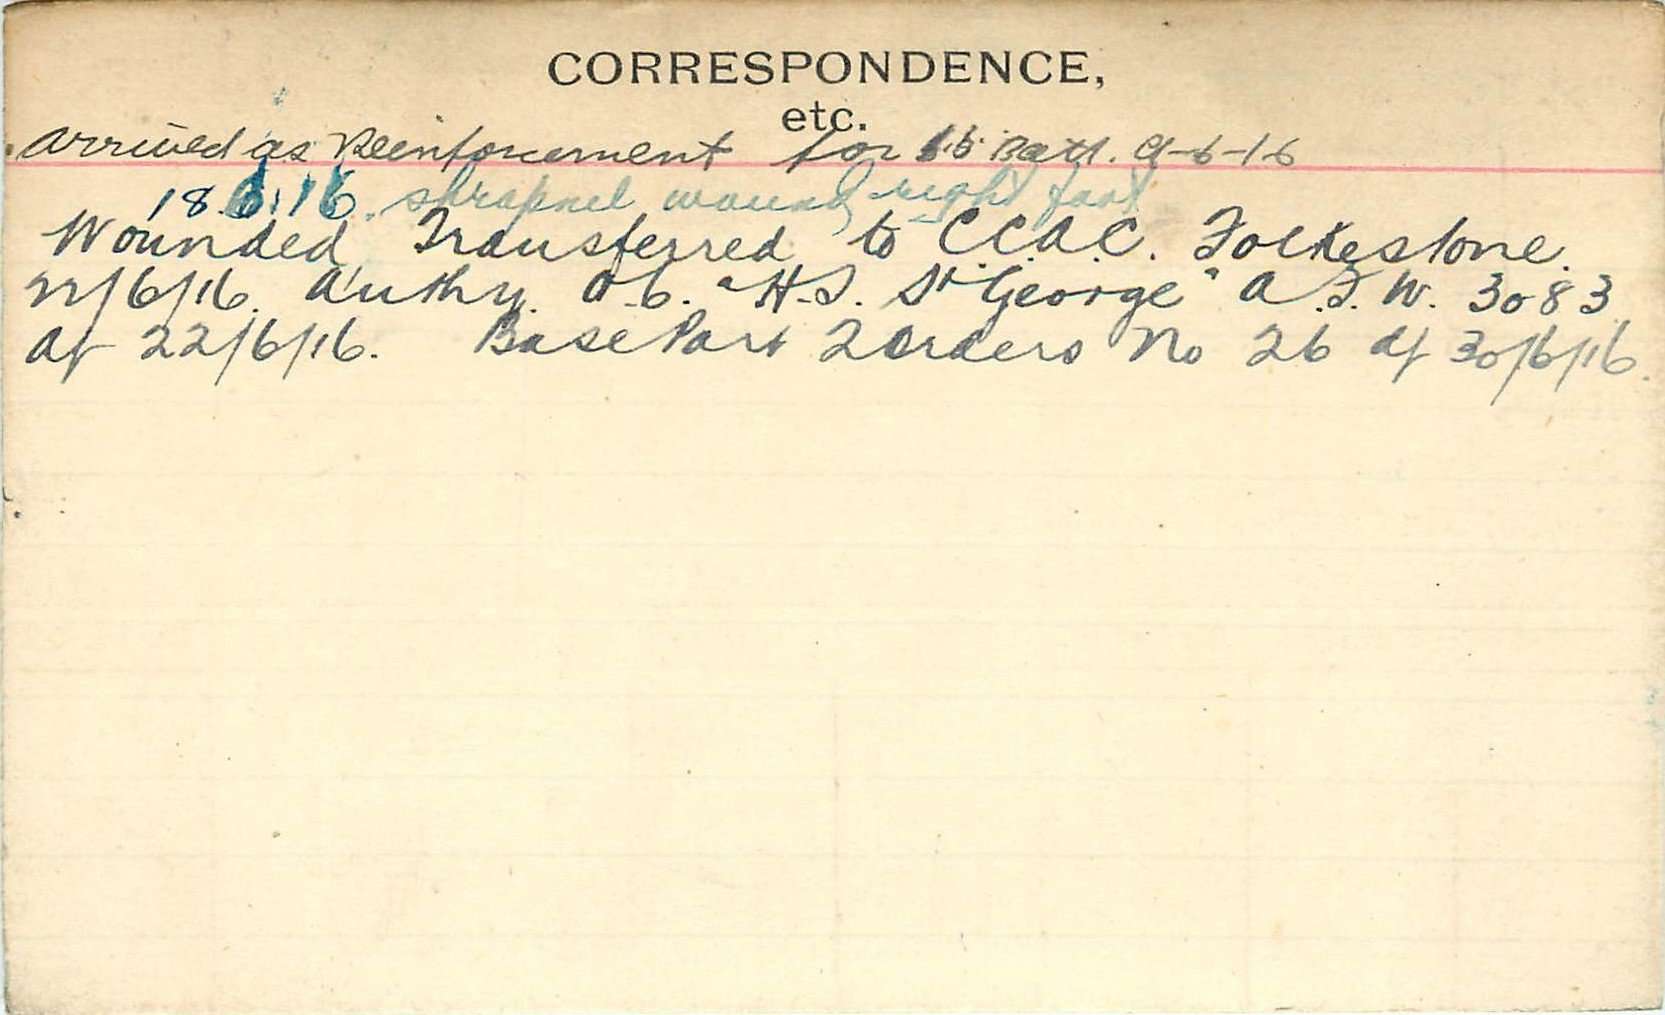 CORRESPONDENCE,
etc.
Arrived as Reinforcement for Batt. 9-6-16
18.6.16. shrapnel wound right foot
Wounded Transferred to C.C.A.C. Folkestone.
22/6/16. Authy. O.C. "H.S. St George" A.F.W. 3083
of 22/6/16. Base Part 2 Orders No 26 of 30/6/16.